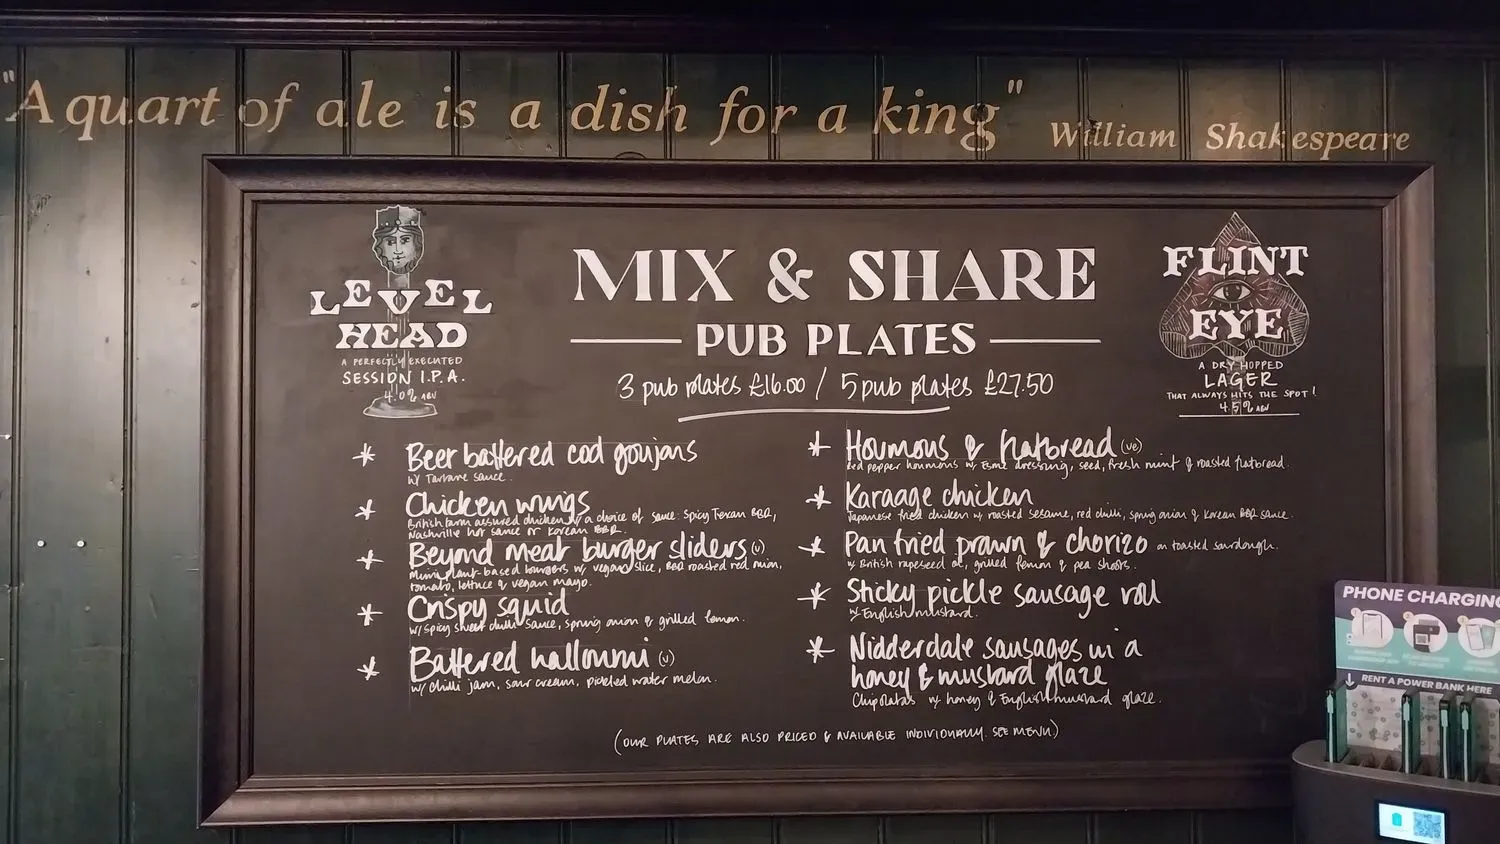 "A quart of ale is a dish for a king" William Shakespeare
LEVEL
HEAD
A PERFECTLY EXECUTED
SESSION I.P.A.
4.0% ABV
MIX & SHARE
PUB PLATES
3 pub plates £16.00 / 5 pub plates £27.50
FLINT
EYE
A DRY HOPPED
LAGER
THAT ALWAYS HITS THE SPOT!
4.5% ABV
* Beer battered cod goujans
w/ Tartare sauce.
* Chicken wings
British farm assured chicken w/ a choice of sauce: Spicy Texan BBQ,
Nashville hot sauce or Korean BBQ.
* Beyond meat burger sliders (v)
Mini plant-based burgers w/ vegan slice, BBQ roasted red onion,
tomato, lettuce & vegan mayo.
* Crispy squid
w/ spicy sweet chilli sauce, spring onion & grilled lemon.
* Battered halloumi (v)
w/ chilli jam, sour cream, pickled water melon.
* Houmous & flatbread (ve)
Red pepper houmous w/ Esme dressing, seed, fresh mint & roasted flatbread.
* Karaage chicken
Japanese fried chicken w/ roasted sesame, red chilli, spring onion & Korean BBQ sauce.
* Pan fried prawn & chorizo on toasted sourdough.
w/ British rapeseed oil, grilled lemon & pea shoots.
* Sticky pickle sausage roll
w/ English mustard.
* Nidderdale sausages in a
honey & mustard glaze
Chipolatas w/ honey & English mustard glaze.
(OUR PLATES ARE ALSO PRICED & AVAILABLE INDIVIDUALLY. SEE MENU)
PHONE CHARGING
RENT A POWER BANK HERE